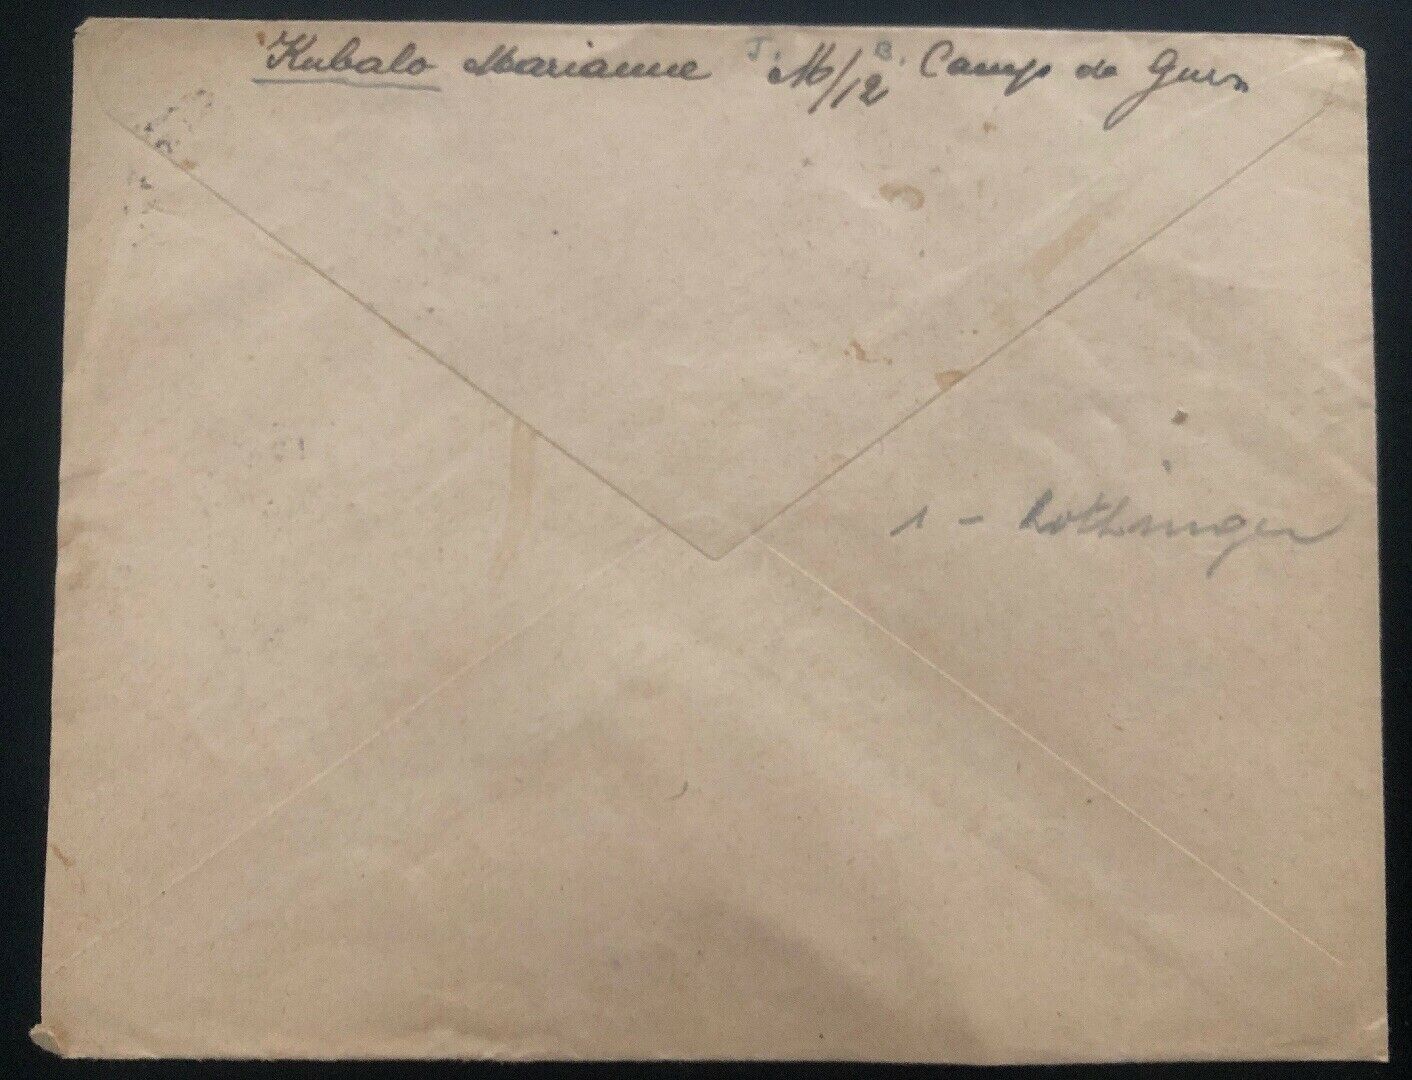 Kubalo Marianne J. M/12 B. Camp de Gurs
1 - Rothinger